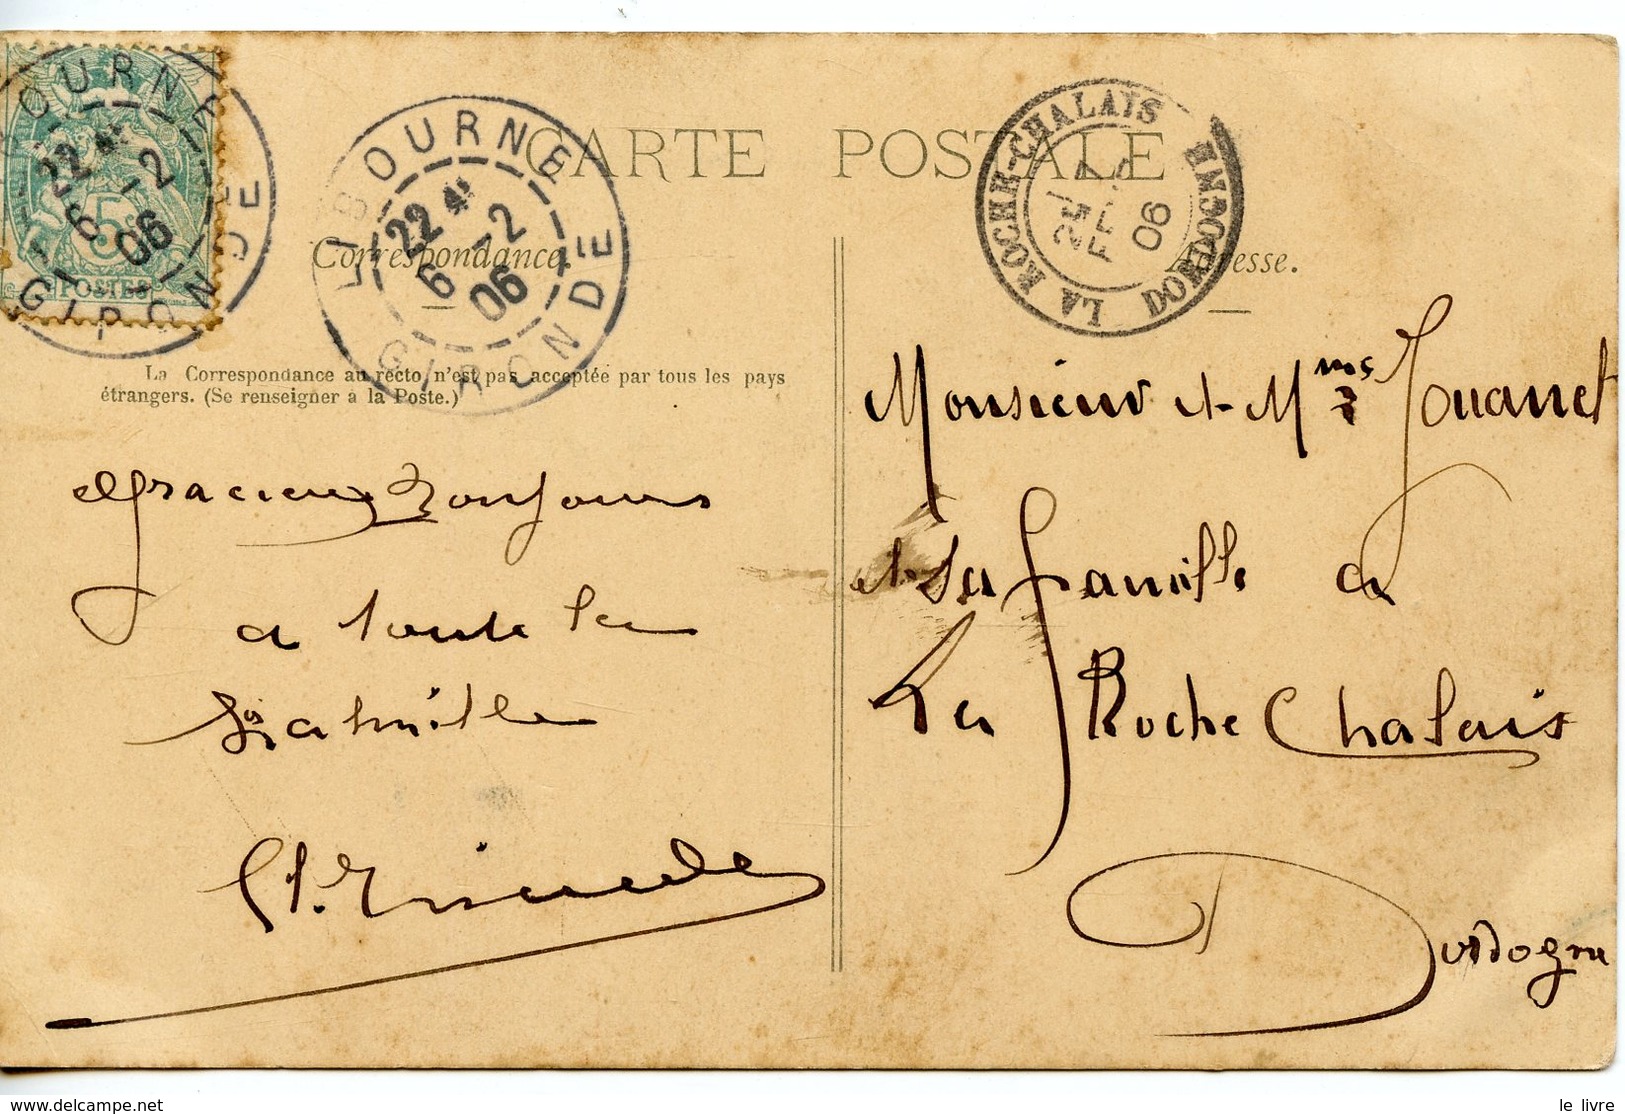 CARTE POSTALE
Correspondance.
Adresse.
La Correspondance au recto n'est pas acceptée par tous les pays
étrangers. (Se renseigner à la Poste.)
LIBOURNE
22
6 -2
06
GIRONDE
LIBOURNE
22
6 -2
06
GIRONDE
5
POSTES
LA ROCHE-CHALAIS
06
DORDOGNE
Gracieux Bonjours
a toute la
famille
Monsieur et Mme Jouanet
et sa famille a
La Roche Chalais
Dordogne
le livre
www.delcampe.net